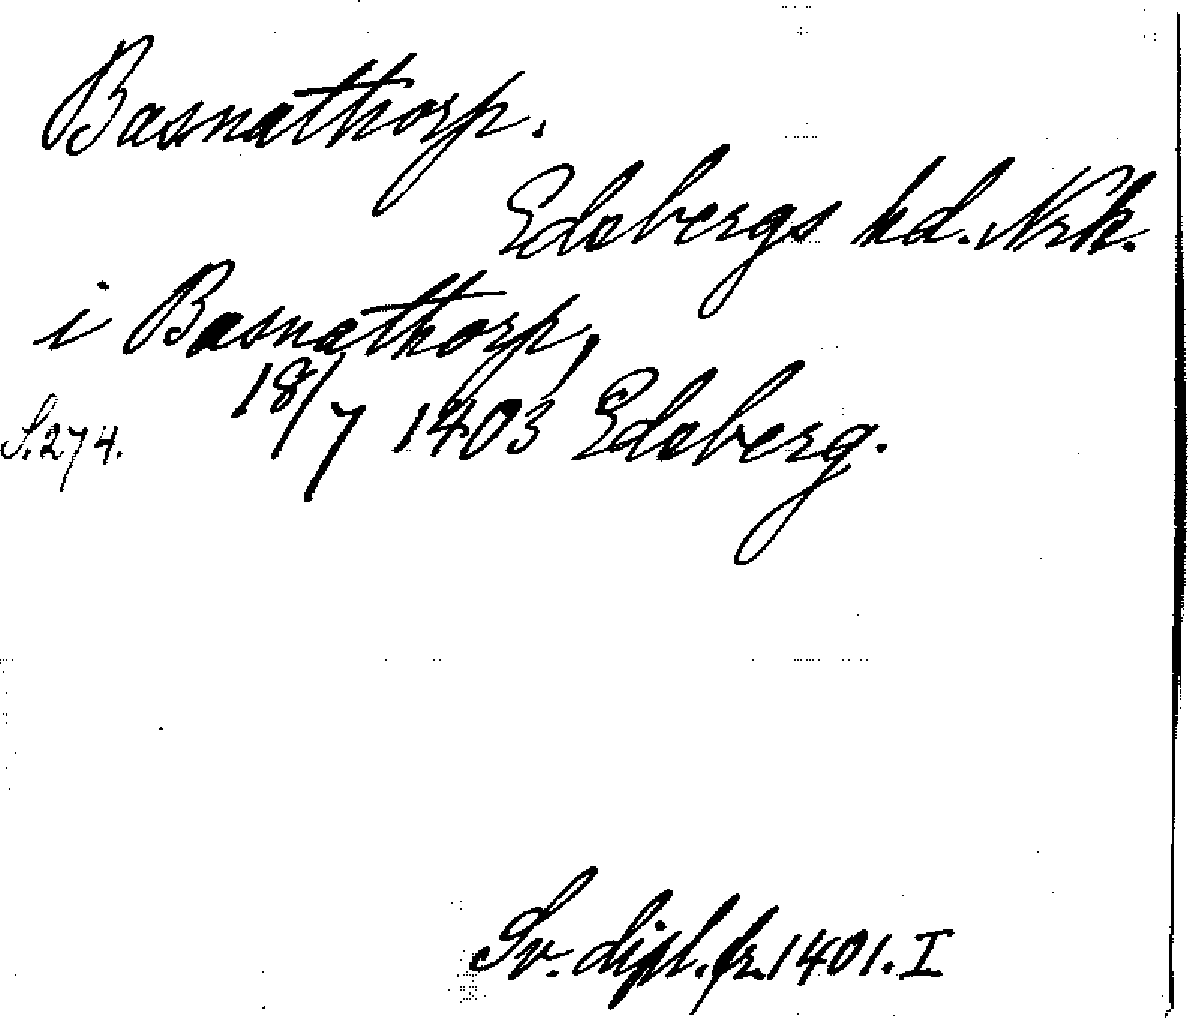 Basnathorp.
Edebergs hd. Nrk.
i Basnathorp,
18/7 1403 Edeberg.
S. 274.
Sv. dipl. fr. 1401. I